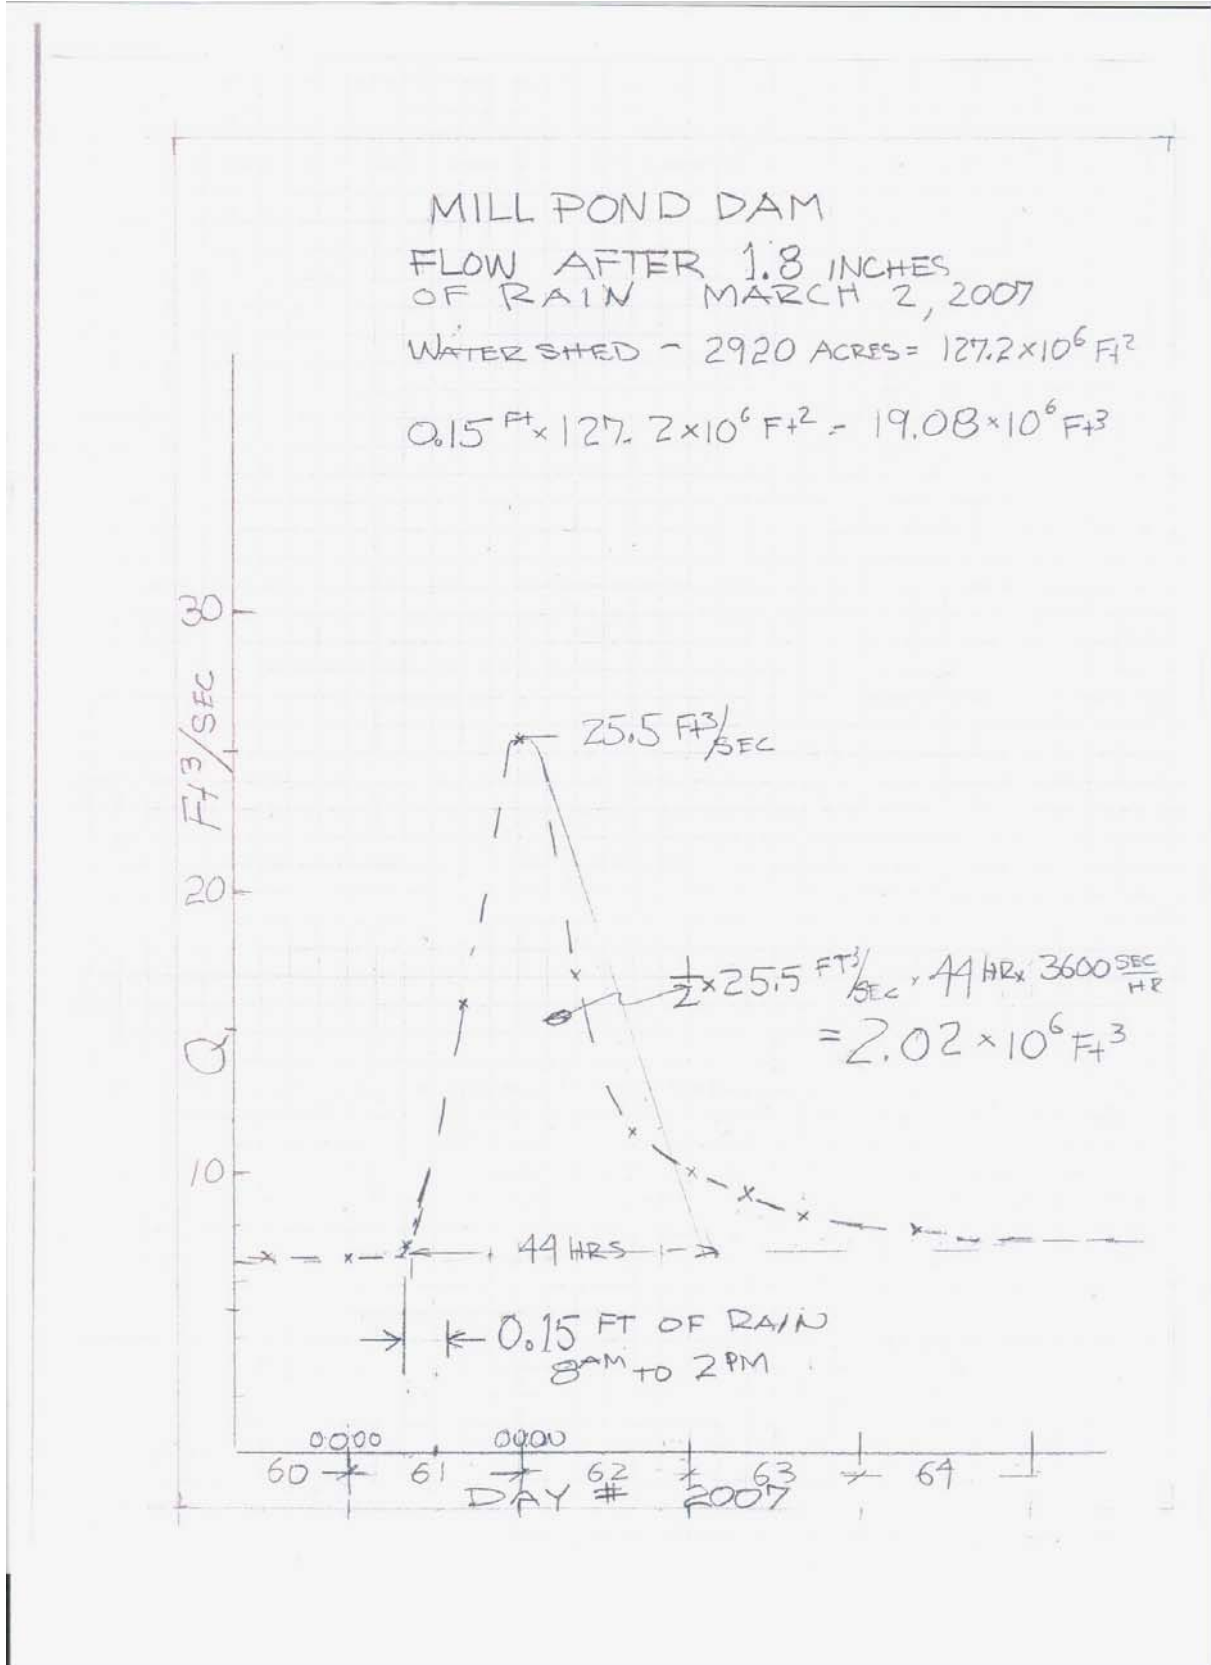 MILL POND DAM
FLOW AFTER 1.8 INCHES
OF RAIN MARCH 2, 2007
WATER SHED - 2920 ACRES = 127.2×10⁶ Ft²
0.15 Ft × 127.2×10⁶ Ft² = 19.08×10⁶ Ft³
30
Q Ft³/SEC
25.5 Ft³/SEC
20
½ × 25.5 FT³/SEC × 44 HR × 3600 SEC/HR
= 2.02 × 10⁶ Ft³
10
44 HRS
0.15 FT OF RAIN
8AM TO 2PM
0000 0000
60 61 62 63 64
DAY # 2007